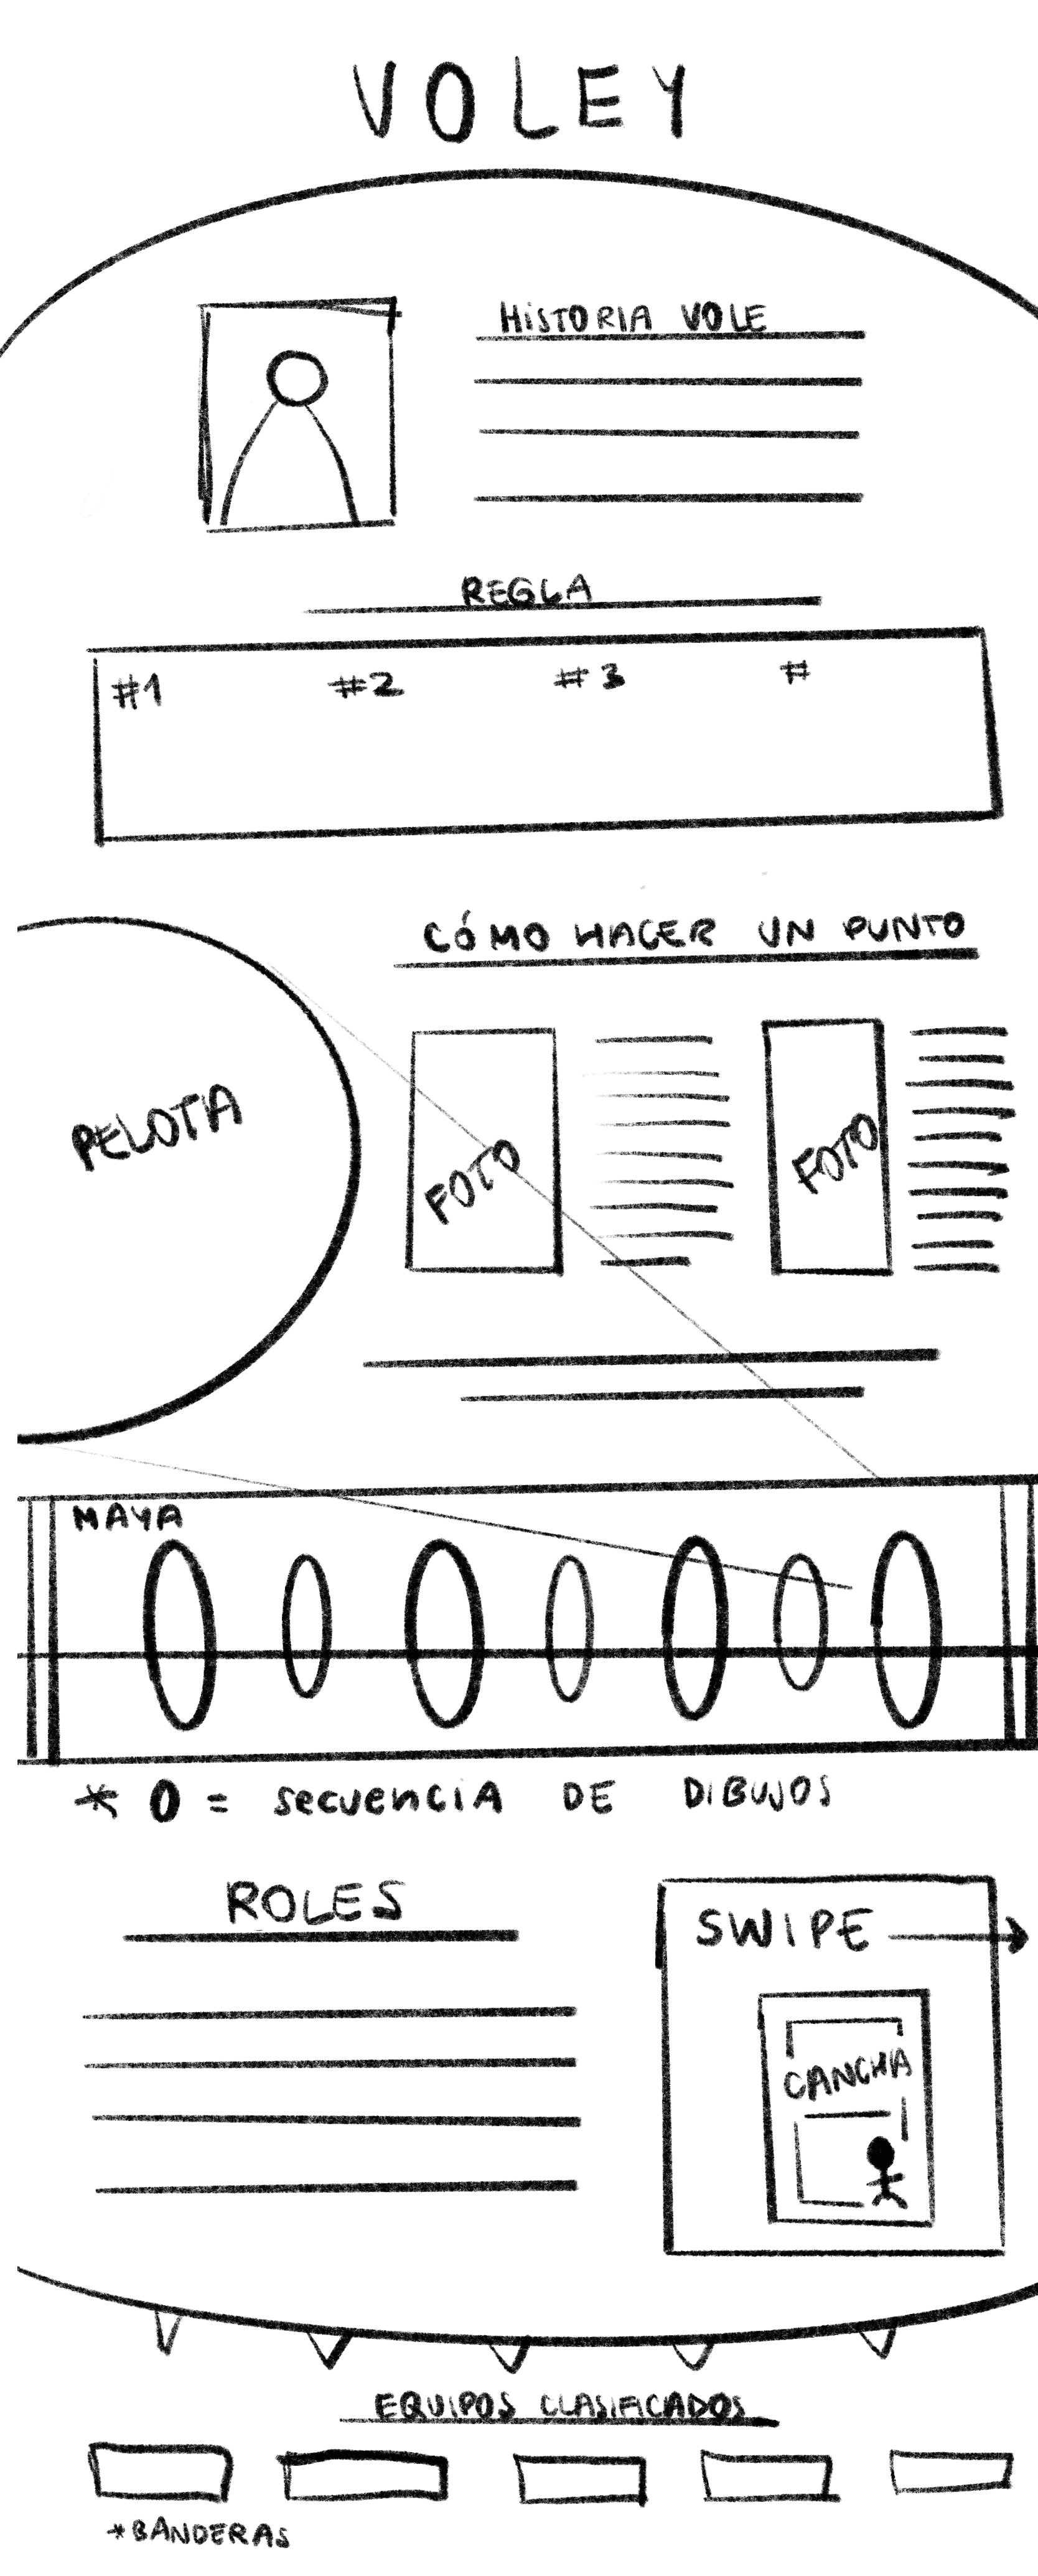 VOLEY
HISTORIA VOLE
REGLA
#1 #2 #3 #
CÓMO HACER UN PUNTO
PELOTA
FOTO
FOTO
MAYA
* O = SECUENCIA DE DIBUJOS
ROLES
SWIPE
CANCHA
EQUIPOS CLASIFICADOS
*BANDERAS